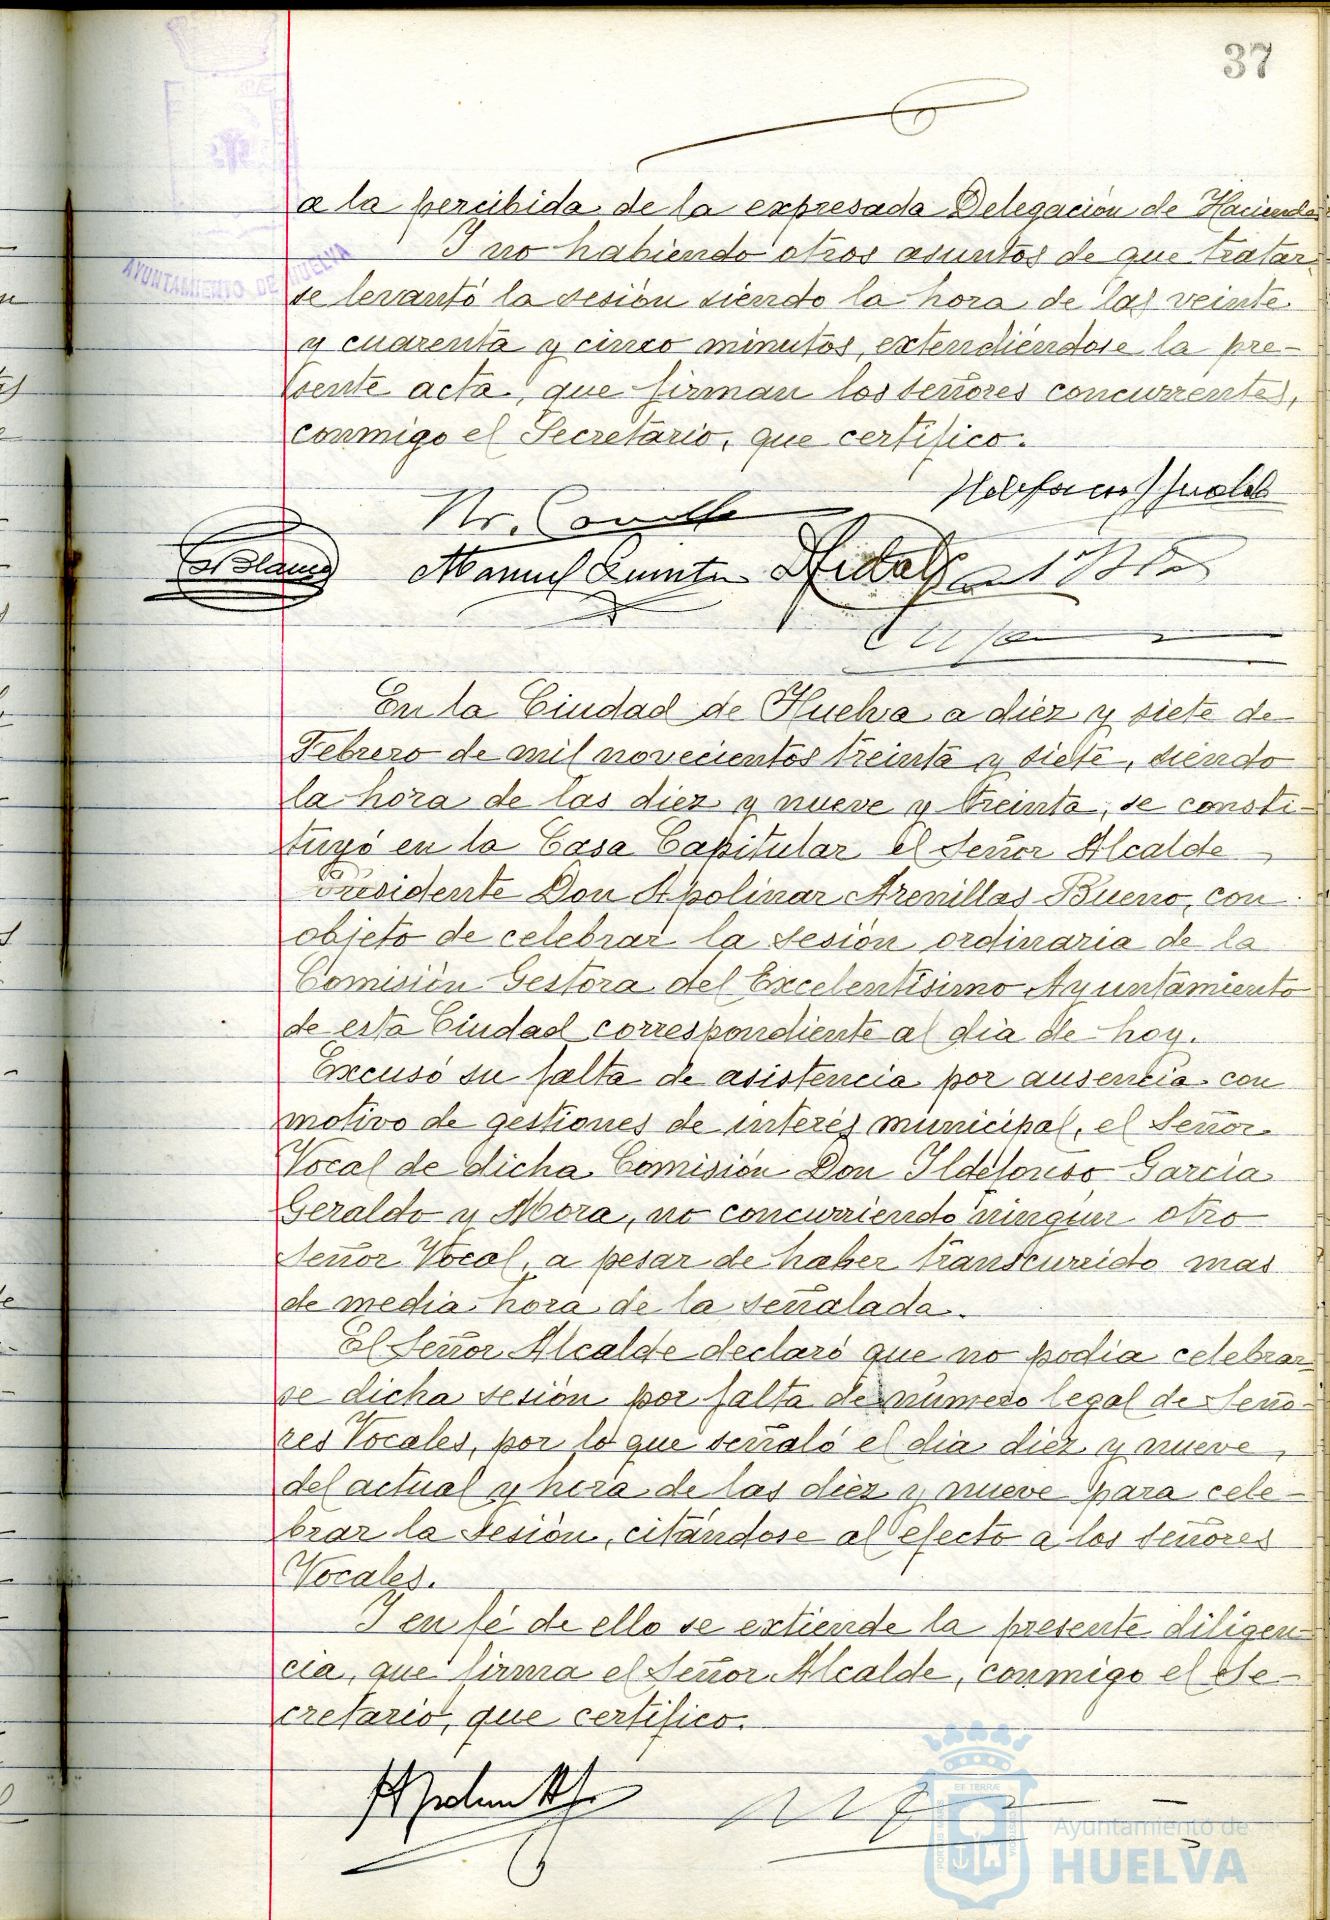 37
a la percibida de la expresada Delegación de Hacienda
Y no habiendo otros asuntos de que tratar
AYUNTAMIENTO DE HUELVA
se levantó la sesión siendo la hora de las veinte
y cuarenta y cinco minutos, extendiéndose la pre-
sente acta, que firman los señores concurrentes,
conmigo el Secretario, que certifico.
Manuel
En la Ciudad de Huelva a diez y siete de
Febrero de mil novecientos treinta y siete, siendo
la hora de las diez y nueve y treinta, se consti-
tuyó en la Casa Capitular el Señor Alcalde
Presidente Don Apolinar Arenillas Bueno, con
objeto de celebrar la sesión ordinaria de la
Comisión Gestora del Excelentísimo Ayuntamiento
de esta Ciudad correspondiente al dia de hoy.
Excusó su falta de asistencia por ausencia con
motivo de gestiones de interés municipal, el Señor
Vocal de dicha Comisión Don Ildefonso García
Geraldo y Mora, no concurriendo ningún otro
Señor Vocal, a pesar de haber transcurrido mas
de media hora de la señalada.
El Señor Alcalde declaró que no podía celebrar-
se dicha sesión por falta de número legal de Seño-
res Vocales, por lo que señaló el dia diez y nueve
del actual y hora de las diez y nueve para cele-
brar la sesión, citándose al efecto a los señores
Vocales.
Y en fé de ello se extiende la presente diligen-
cia, que firma el Señor Alcalde, conmigo el Se-
cretario, que certifico.
Ayuntamiento de
HUELVA